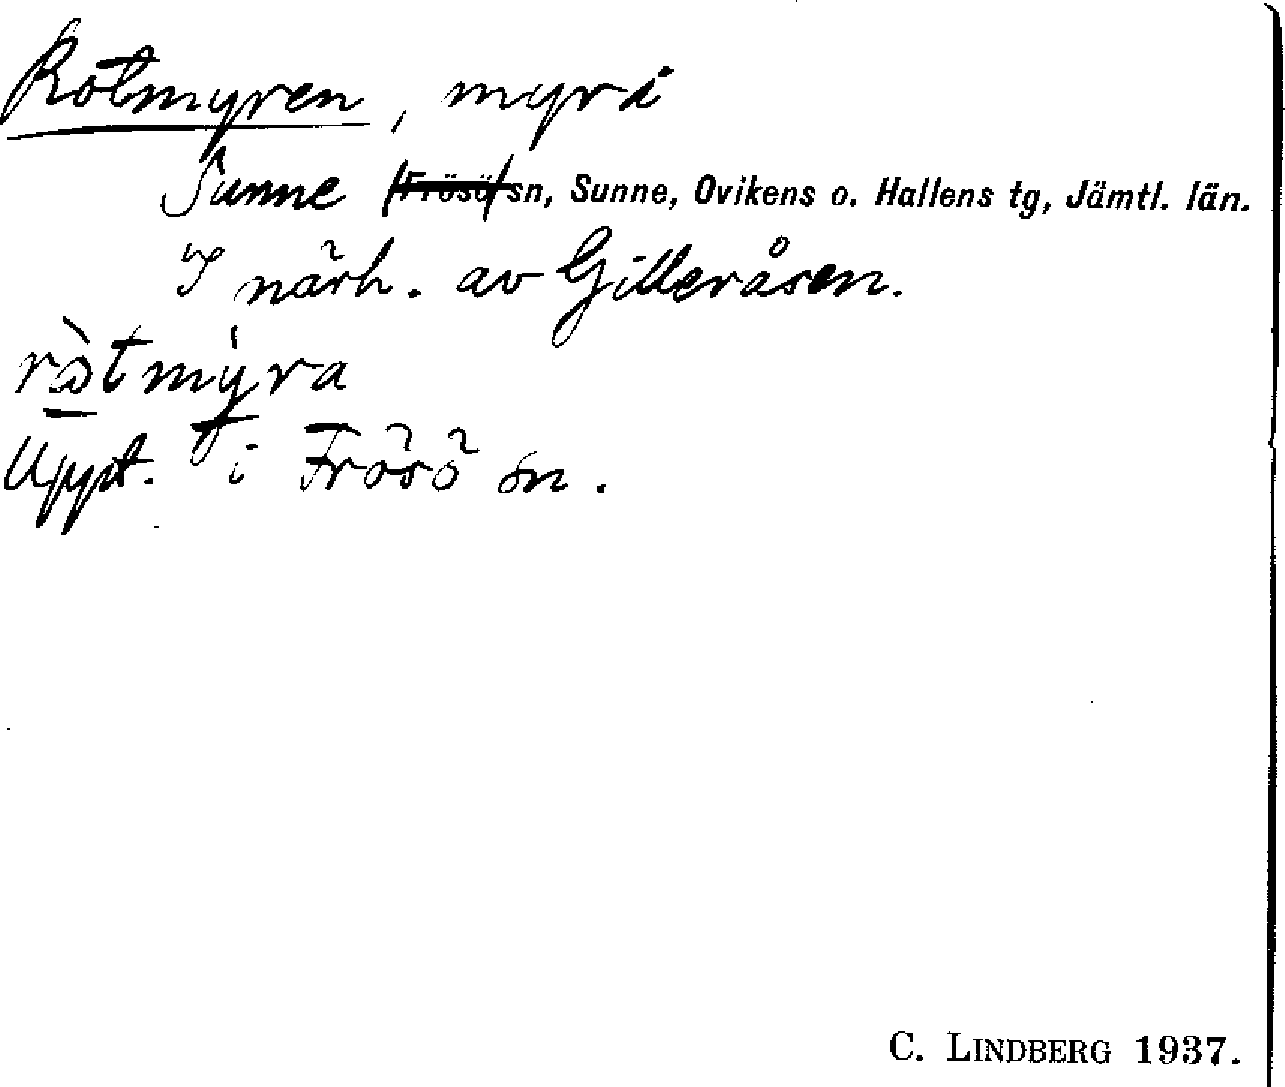 Rotmyren, myr i
Sunne (Frösö) sn, Sunne, Ovikens o. Hallens tg, Jämtl. län.
I närh. av Gilleråsen.
Uppt. i Frösö sn.
C. LINDBERG 1937.